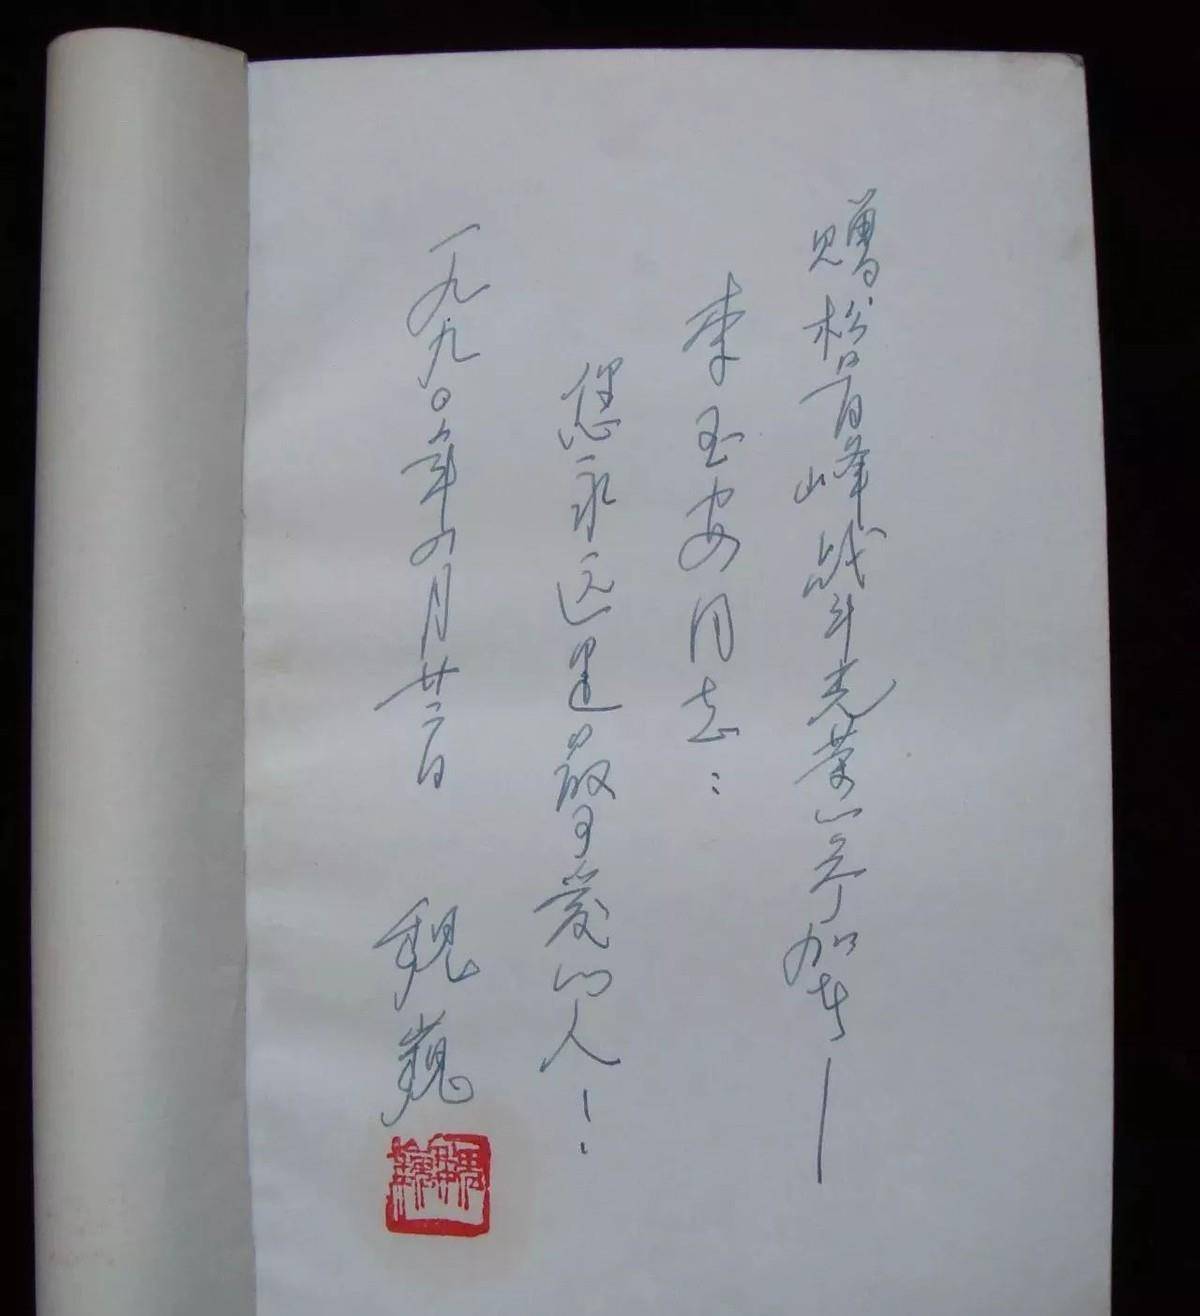 赠松骨峰战斗光荣参加者——
李玉安同志：
您永远是最可爱的人！
一九九〇年六月廿二日 魏巍